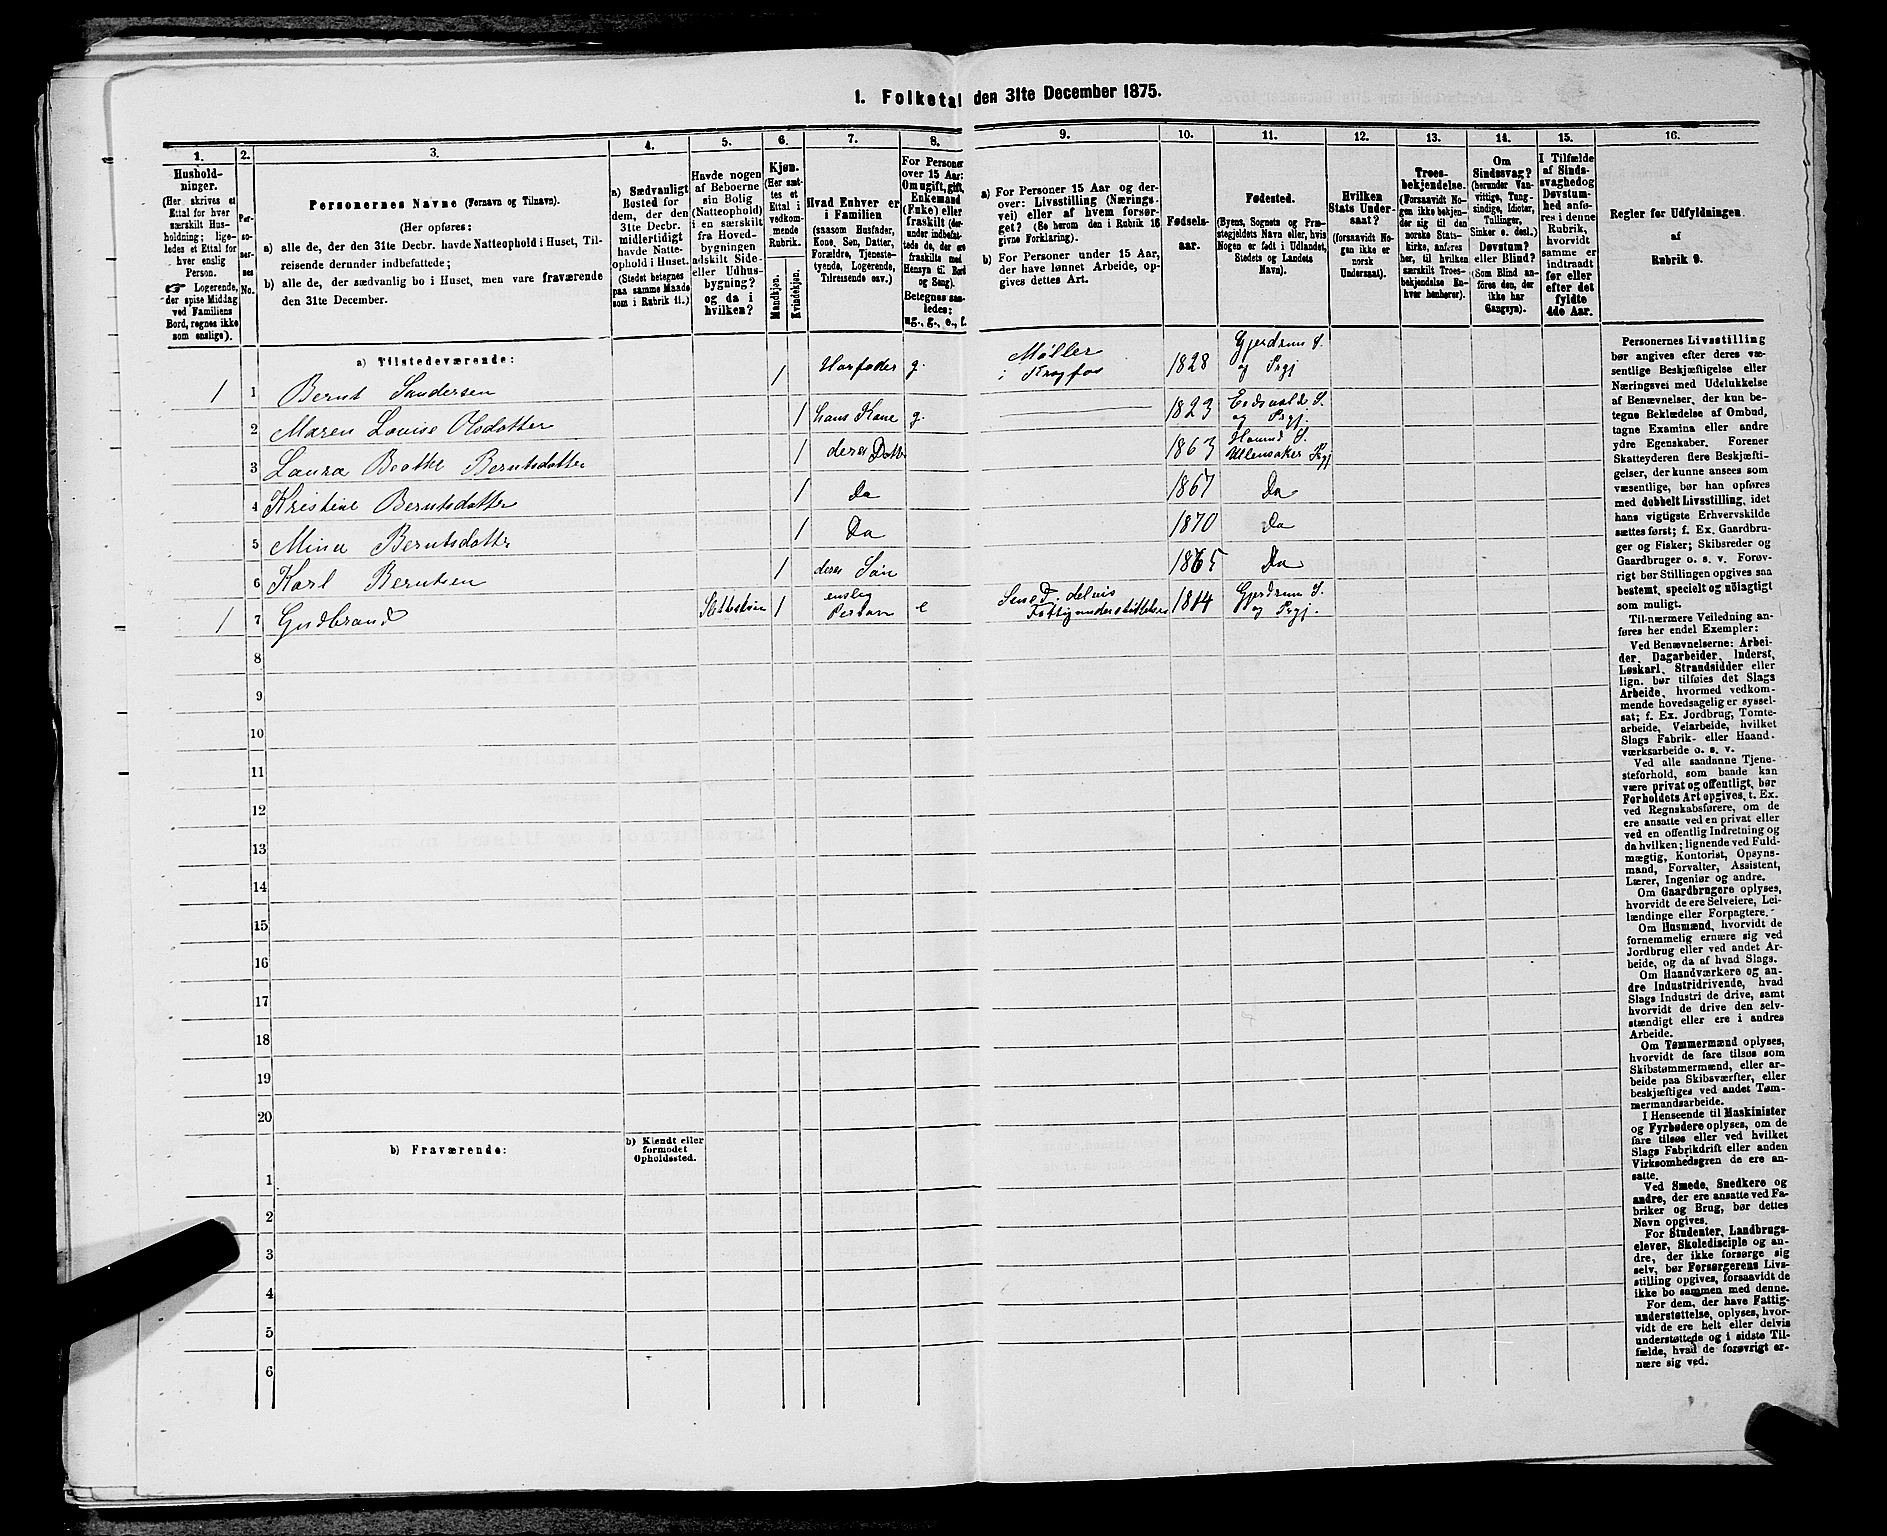 1. Folketal den 31te December 1875.
1.
2.
3.
4.
5.
6.
7.
8.
9.
10.
11.
12.
13.
14.
15.
16.
Husholdninger.
(Her skrives et
Ettal for hver
særskilt Husholdning;
ligeledes et Ettal for
hver enslig
Person.
Logerende,
der spise Middag
ved Familiens
Bord, regnes ikke
som enslige).
Personernes No.
Personernes Navne (Fornavn og Tilnavn).
(Her opføres:
a) alle de, der den 31te Decbr. havde Natteophold i Huset, Tilreisende derunder indbefattede;
b) alle de, der sædvanlig bo i Huset, men vare fraværende den 31te December.
a) Sædvanligt
Bosted for
dem, der den
31te Decbr.
midlertidigt
havde Natteophold
i Huset.
(Stedet betegnes
paa samme Maade
som i Rubrik 11.)
Havde nogen
af Beboerne
sin Bolig
(Natteophold)
i en særskilt
fra Hovedbygningen
adskilt Side-
eller Udhusbygning?
og da i
hvilken?
Kjøn.
(Her sættes et
Ettal i
vedkommende
Rubrik.
Mandkjøn.
Kvindekjøn.
Hvad Enhver er
i Familien
(saasom Husfader,
Kone, Søn, Datter,
Forældre, Tjenestetyende,
Logerende,
Tilreisende osv.)
For Personer
over 15 Aar:
Om ugift, gift,
Enkemand
(Enke) eller
fraskilt (derunder
indbefattede
de, der ere
fraskilte med
Hensyn til Bord
og Seng).
Betegnes saaledes:
ug., g., e., f.
a) For Personer 15 Aar og derover: Livsstilling (Næringsvei) eller af hvem forsørget? (Se herom den i Rubrik 16 givne Forklaring).
b) For Personer under 15 Aar, der have lønnet Arbeide, opgives dettes Art.
Fødselsaar.
Fødested.
(Byens, Sognets og Præstegjeldets
Navn eller, hvis
Nogen er født i Udlandet,
Stedets og Landets
Navn).
Hvilken
Stats Undersaat?
(forsaavidt Nogen
ikke er
norsk
Undersaat).
Troesbekjendelse.
(Forsaavidt Nogen
ikke bekjender
sig til den
norske Statskirke,
anføres
her, til hvilken
særskilt Troesbekjendelse
Enhver
henhører).
Om
Sindssvag?
(herunder Vanvittige,
Tungsindige,
Idioter,
Tullinger,
Sinker o. desl.)
Døvstum?
eller Blind?
(Som Blind anføres
den, der
ikke har
Gangsyn).
I Tilfælde
af Sindssvaghed
og Døvstumhed
anføres
i denne
Rubrik,
hvorvidt
samme er
indtraadt
før eller
efter det
fyldte
4de Aar.
Regler for Udfyldningen
af
Rubrik 9.
a) Tilstedeværende:
1 1 Bernt Sandersen 1 Husfader g. Møller i Krogfos 1828 Gjerdrum S. og Prgj
2 Maren Lovise Olsdatter 1 hans Kone g. 1823 Eidsvold S. og Prgj.
3 Laura Beathe Berntsdatter 1 deres Datt. 1863 Hovind S. Ullensaker Prgj
4 Kristine Berntsdatter 1 Do 1867 Do
5 Mina Berntsdatter 1 Do 1870 Do
6 Karl Berntsen 1 deres Søn 1865 Do
1 7 Gudbrand 1 enslig Person e delvis Fattigunderstøttelse 1814 Gjerdrum S. og Prgj.
8
9
10
11
12
13
14
15
16
17
18
19
20
b) Fraværende:
b) Kjendt eller
formodet
Opholdssted.
1
2
3
4
5
6
Personernes Livsstilling
bør angives efter deres væsentlige
Beskjæftigelse eller
Næringsvei med Udelukkelse
af Benævnelser, der kun betegne
Beklædelse af Ombud,
tagne Examina eller andre
ydre Egenskaber. Forener
Skatteyderen flere Beskjæftigelser,
der kunne ansees som
væsentlige, bør han opføres
med dobbelt Livsstilling, idet
hans vigtigste Erhvervskilde
sættes først; f. Ex. Gaardbruger
og Fisker; Skibsreder og
Gaardbruger o. s. v. Forøvrigt
bør Stillingen opgives saa
bestemt, specielt og nöiagtigt
som muligt.
Til nærmere Veiledning anføres
her endel Exempler:
Ved Benævnelserne: Arbeider,
Dagarbeider, Inderst,
Løskarl, Strandsidder eller
lign. bør tilføies det Slags
Arbeide, hvormed vedkommende
hovedsagelig er sysselsat;
f. Ex. Jordbrug, Tomtearbeide,
Veiarbeide, hvilket
Slags Fabrik- eller Haandværksarbeide
o. s. v.
Ved alle saadanne Tjenesteforhold,
som baade kan
være privat og offentligt, bør
Forholdets Art opgives, t. Ex.
ved Regnskabsførere, om de
ere ansatte ved en privat eller
ved en offentlig Indretning og
da hvilken; lignende ved Fuldmægtig,
Kontorist, Opsynsmand,
Forvalter, Assistent,
Lærer, Ingeniør og andre.
Om Gaardbrugere oplyses,
hvorvidt de ere Selveiere, Leilændinge
eller Forpagtere.
Om Husmænd, hvorvidt de
fornemmelig ernære sig ved
Jordbrug eller ved andet Arbeide,
og da af hvad Slags.
Om Haandværkere og andre
Industridrivende, hvad
Slags Industri de drive, samt
hvorvidt de drive den selvstændigt
eller ere i andres
Arbeide.
Om Tømmermænd oplyses,
hvorvidt de fare tilsøs som
Skibstømmermænd, eller arbeide
paa Skibsværfter, eller
beskjæftiges ved andet Tømmermandsarbeide.
I Henseende til Maskinister
og Fyrbødere oplyses, om de
fare tilsøs eller ved hvilket
Slags Fabrikdrift eller anden
Virksomhedsgren de ere ansatte.
Ved Smede, Snedkere og
andre, der ere ansatte ved Fabriker
og Brug, bør dettes
Navn opgives.
For Studenter, Landbrugselever,
Skoledisciple og andre,
der ikke forsørge sig
selv, bør Forsørgerens Livsstilling
opgives, forsaavidt de
ikke bo sammen med denne.
For dem, der have Fattigunderstøttelse,
oplyses, hvorvidt
de ere helt eller delvis
understøttede og i sidste Tilfælde,
hvad de forøvrigt ernære
sig ved.